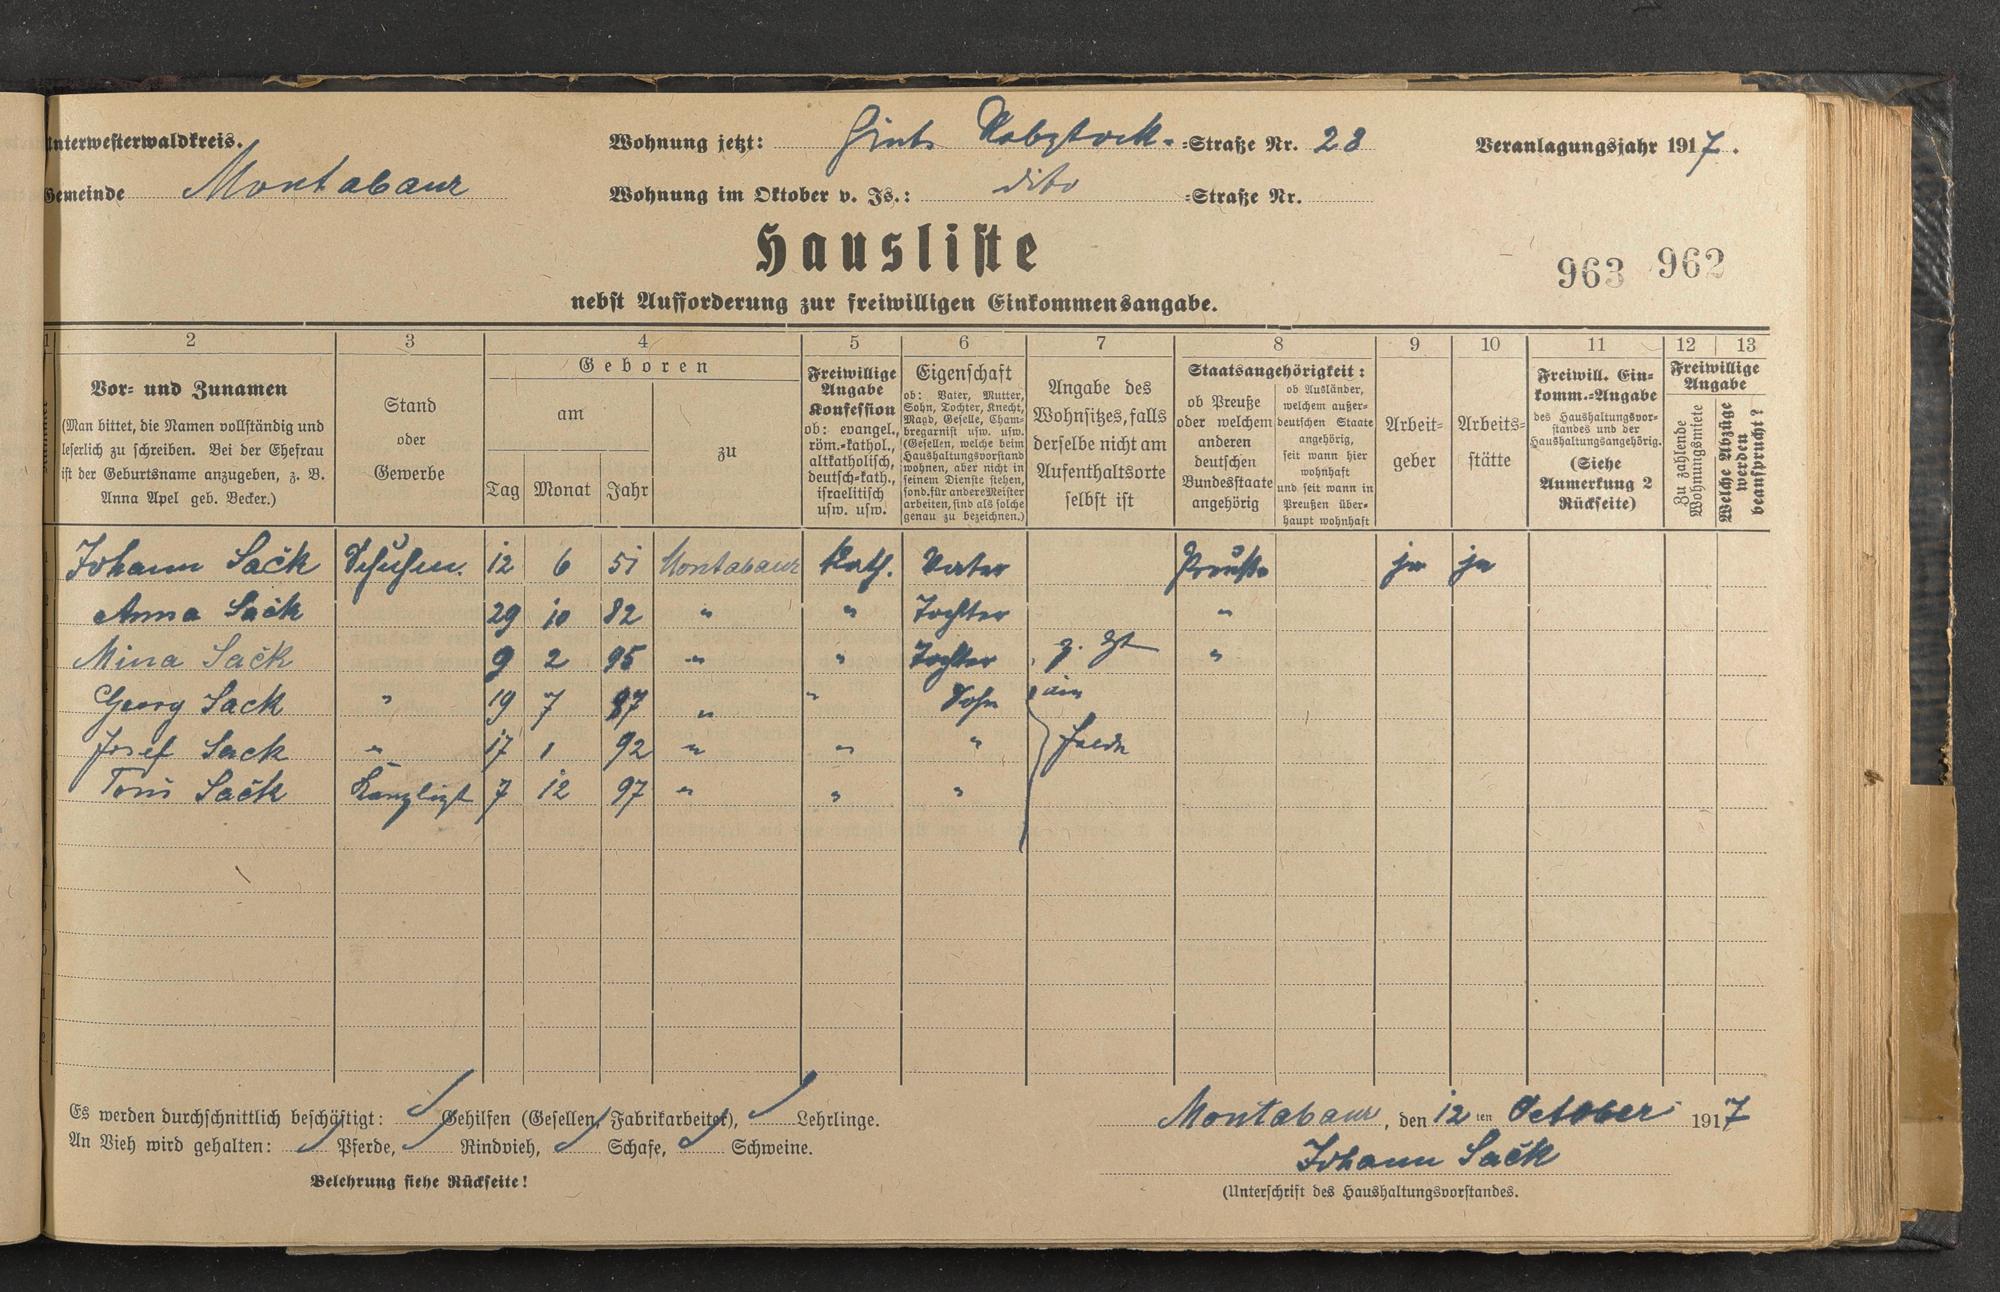 Unterwesterwaldkreis.
Wohnung jetzt: Hint. Rebstock- -Straße Nr. 28
Veranlagungsjahr 1917.
Gemeinde Montabaur
Wohnung im Oktober v. Js.: dito -Straße Nr.
Hausliste
963 962
nebst Aufforderung zur freiwilligen Einkommensangabe.
1 2 3 4 5 6 7 8 9 10 11 12 13
Vor- und Zunamen
(Man bittet, die Namen vollständig und
leserlich zu schreiben. Bei der Ehefrau
ist der Geburtsname anzugeben, z. B.
Anna Apel geb. Becker.)
Stand
oder
Gewerbe
Geboren
am
Tag Monat Jahr
zu
Freiwillige
Angabe
Konfession
ob: evangel.,
röm.-kathol.,
altkatholisch,
deutsch-kath.,
israelitisch
usw. usw.
Eigenschaft
ob: Vater, Mutter,
Sohn, Tochter, Knecht,
Magd, Geselle, Cham-
bregarnist usw. usw.
(Gesellen, welche beim
Haushaltungsvorstand
wohnen, aber nicht in
seinem Dienste stehen,
sond. für andere Meister
arbeiten, sind als solche
genau zu bezeichnen.)
Angabe des
Wohnsitzes, falls
derselbe nicht am
Aufenthaltsorte
selbst ist
Staatsangehörigkeit:
ob Preuße
oder welchem
anderen
deutschen
Bundesstaate
angehörig
ob Ausländer,
welchem außer-
deutschen Staate
angehörig,
seit wann hier
wohnhaft
und seit wann in
Preußen über-
haupt wohnhaft
Arbeit-
geber
Arbeits-
stätte
Freiwill. Ein-
komm.-Angabe
des Haushaltungsvor-
standes und der
Haushaltungsangehörig.
(Siehe
Anmerkung 2
Rückseite)
Freiwillige
Angabe
Zu zahlende
Wohnungsmiete
Welche Abzüge
werden
beansprucht?
Johann Sack 12 6 51 Montabaur Kath. Vater Preuße ja ja
Anna Sack 29 10 82 " " Tochter "
Mina Sack 9 2 95 " " Tochter z. Zt "
Georg Sack " 19 7 87 " " Sohn im
Josef Sack " 17 1 92 " " " Felde
Toni Sack Kanzlist 7 12 97 " " "
Es werden durchschnittlich beschäftigt: Gehilfen (Gesellen, Fabrikarbeiter), Lehrlinge.
An Vieh wird gehalten: Pferde, Rindvieh, Schafe, Schweine.
Belehrung siehe Rückseite!
Montabaur, den 12ten October 1917
Johann Sack
(Unterschrift des Haushaltungsvorstandes.